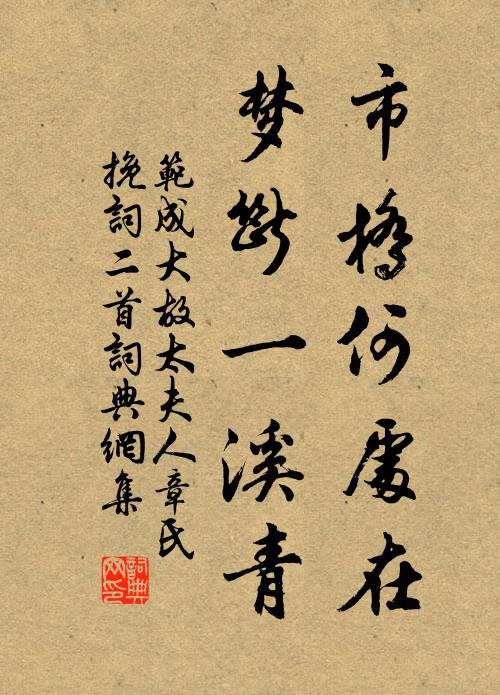 市橋何處在
梦斷一溪青
範成大故太夫人章氏
挽詞二首詞典網集
詞典
网印